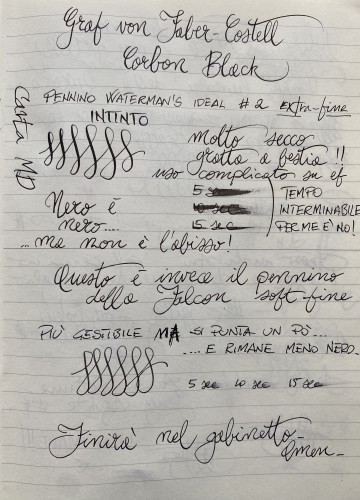 Graf von Faber-Castell
Carbon Black
PENNINO WATERMAN'S IDEAL #2 extra-fine
INTINTO
Carta MD
molto secco
gratta a bestia!!
uso complicato su ef
5 sec
10 sec
15 sec
TEMPO
INTERMINABILE
PER ME È NO!
Nero è
nero....
...ma non è l'abisso!
Questo è invece il pennino
della Falcon soft-fine
PIÙ GESTIBILE MA SI PUNTA UN PÒ...
....E RIMANE MENO NERO.
5 sec 10 sec 15 sec
Finirà nel gabinetto-
Amen-